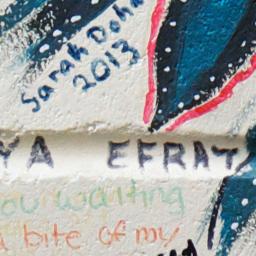 Sarah Doha
2013
YA EFRAT
you waiting
a bite of my